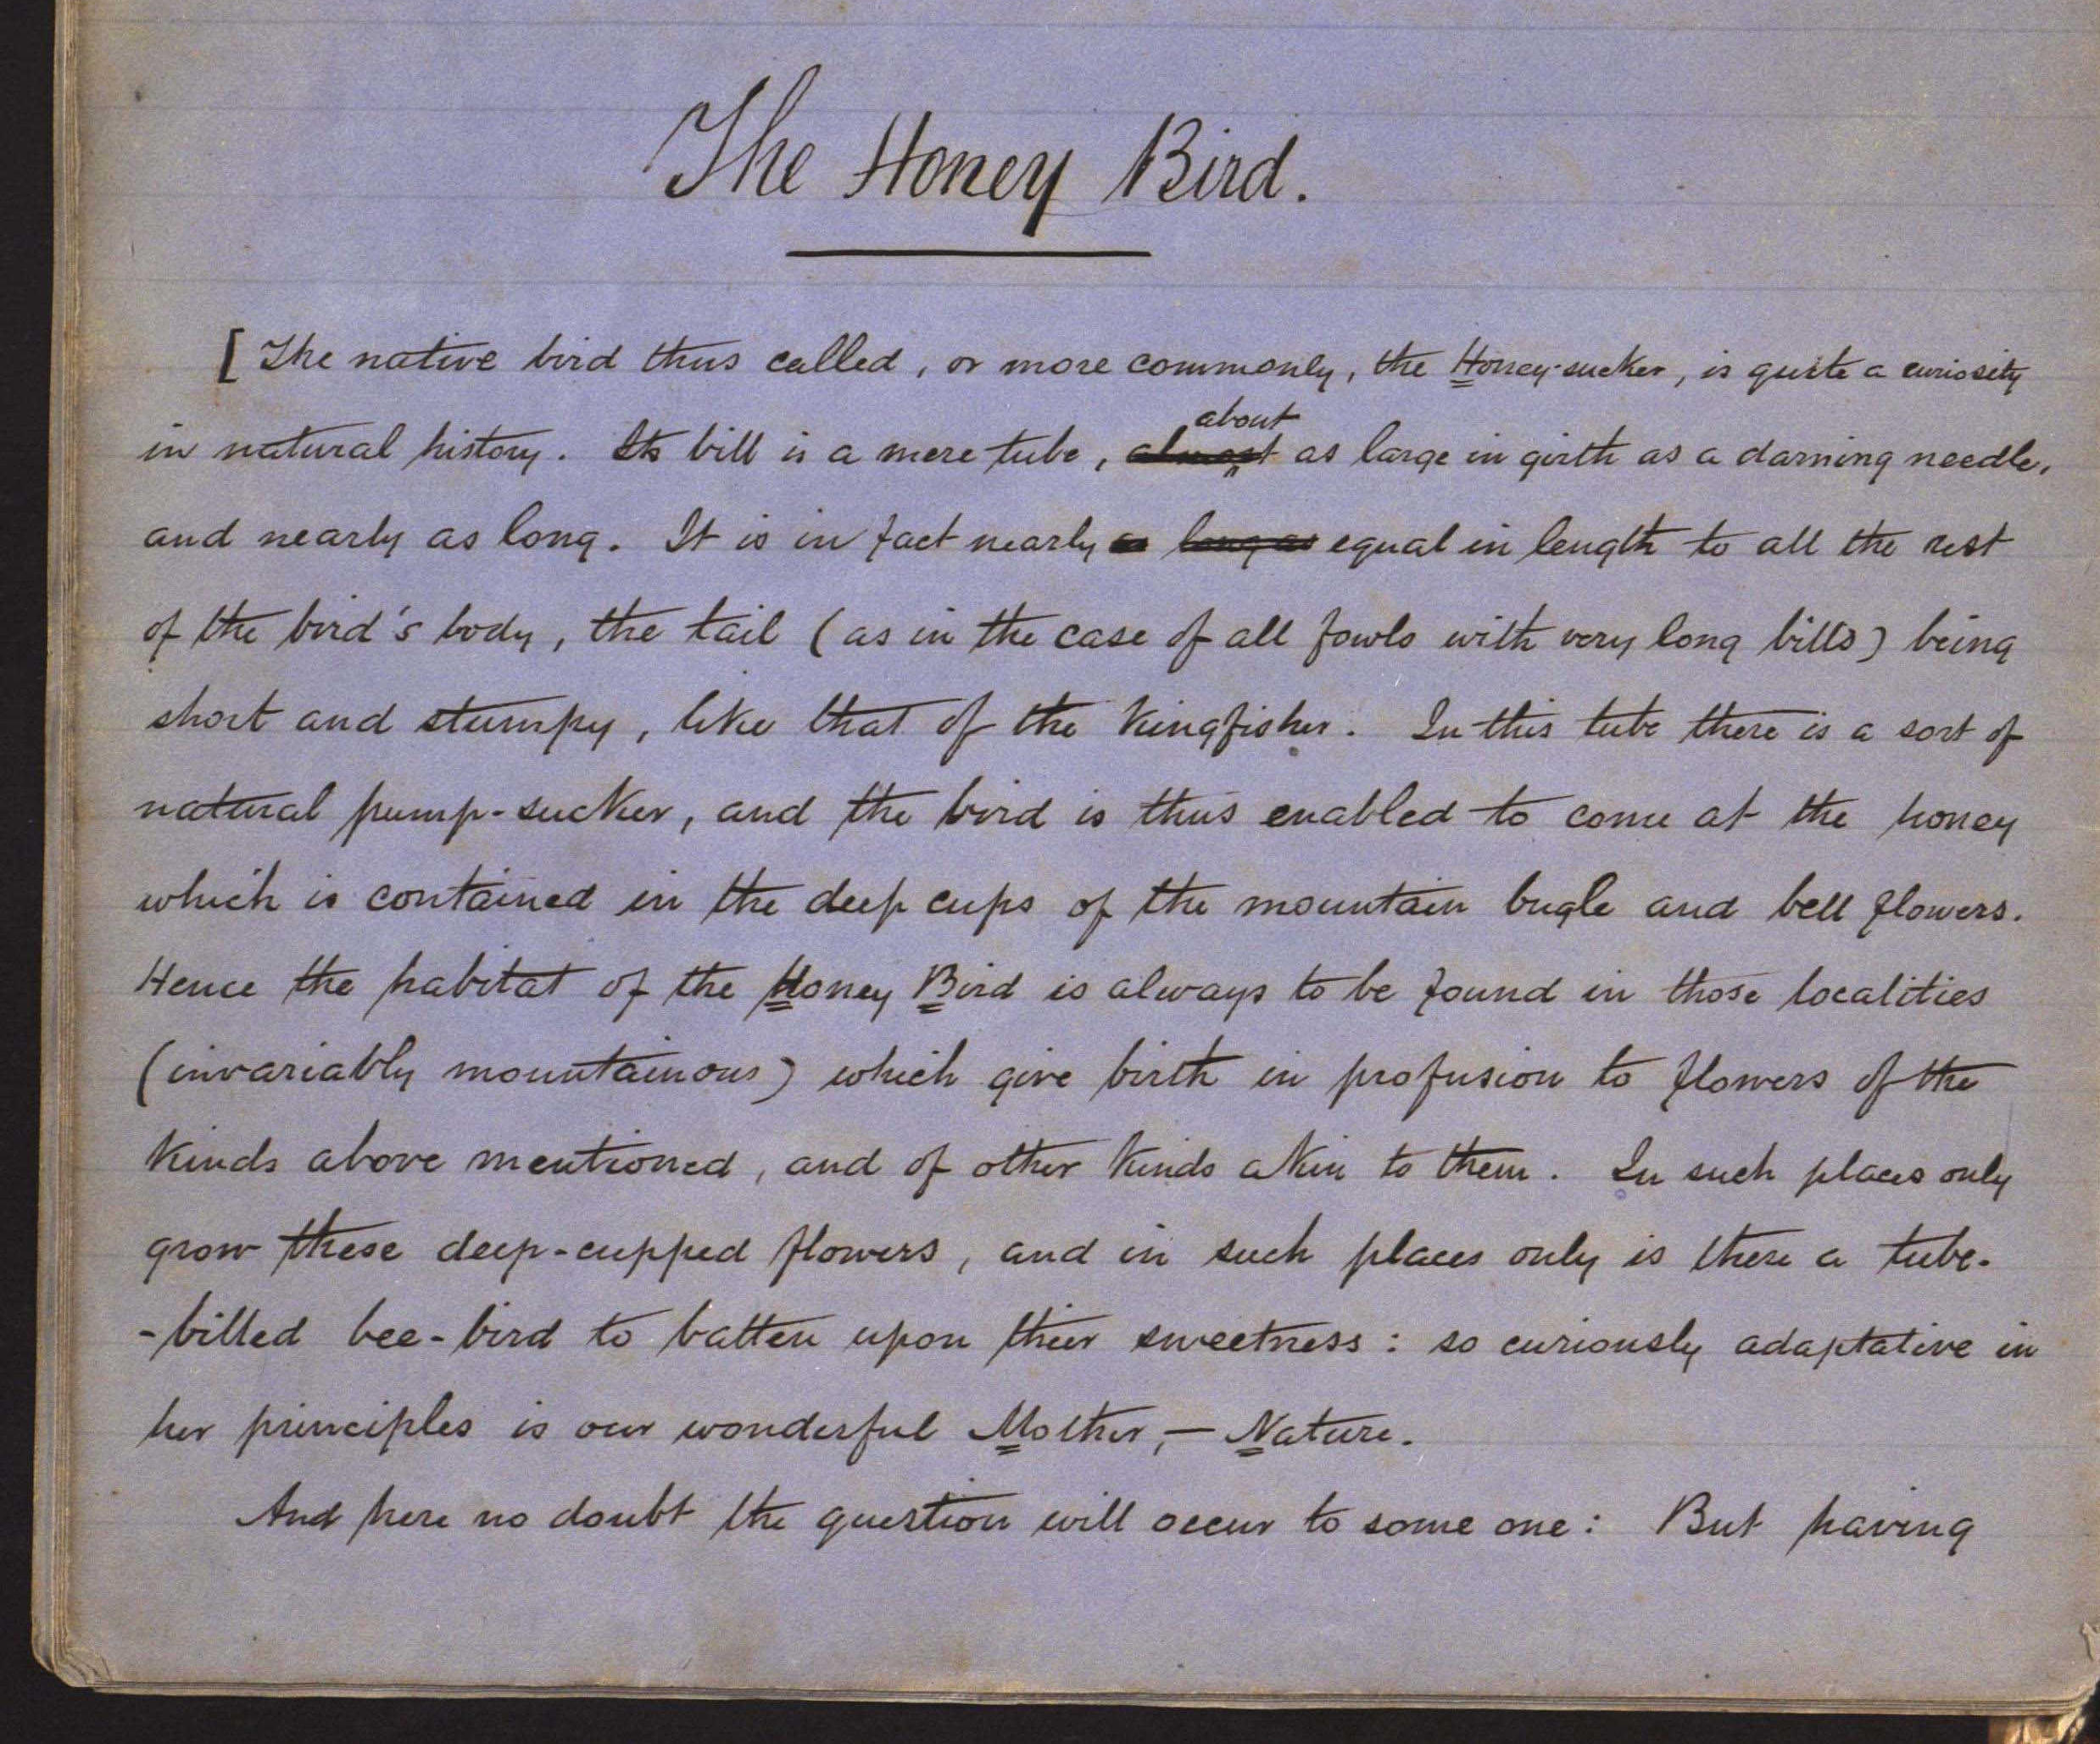 The Honey Bird.
[The native bird thus called, or more commonly, the Honey-sucker, is quite a curiosity
about
in natural history. Its bill is a mere tube, almost as large in girth as a darning needle,
and nearly as long. It is in fact nearly as long as equal in length to all the rest
of the bird's body, the tail (as in the case of all fowls with very long bills) being
short and stumpy, like that of the Kingfisher. In this tube there is a sort of
natural pump-sucker, and the bird is thus enabled to come at the honey
which is contained in the deep cups of the mountain bugle and bell flowers.
Hence the habitat of the Honey Bird is always to be found in those localities
(invariably mountainous) which give birth in profusion to flowers of the
kinds above mentioned, and of other kinds akin to them. In such places only
grow these deep-cupped flowers, and in such places only is there a tube-
-billed bee-bird to batten upon their sweetness: so curiously adaptative in
her principles is our wonderful Mother,— Nature.
And here no doubt the question will occur to some one: But having